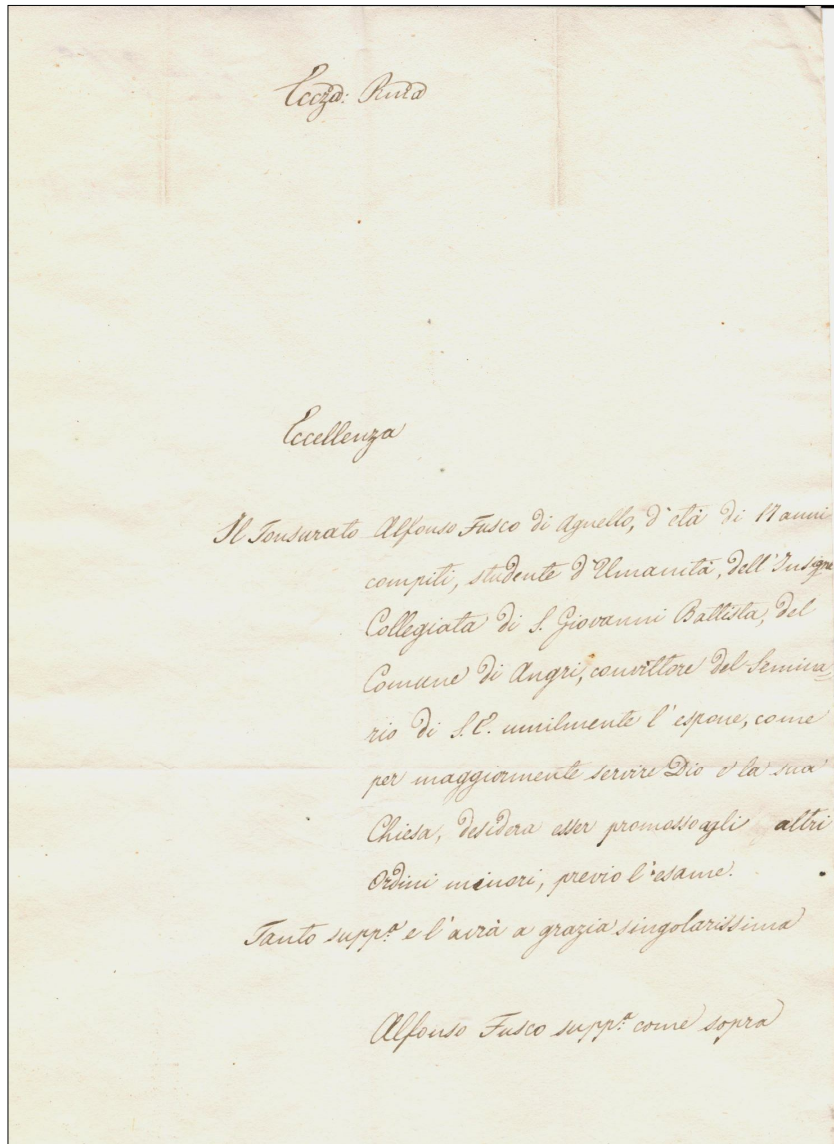 Eccza: Rma
Eccellenza
Il Tonsurato Alfonso Fusco di Agnello, d'età di 17 anni
compiti, studente d'Umanità, dell'Insigne
Collegiata di S. Giovanni Battista, del
Comune di Angri, convittore del Semina=
rio di S.E. umilmente l'espone, come
per maggiormente servire Dio e la sua
Chiesa, desidera esser promosso agli altri
Ordini minori, previo l'esame.
Tanto supp.a e l'avrà a grazia singolarissima
Alfonso Fusco supp.e come sopra